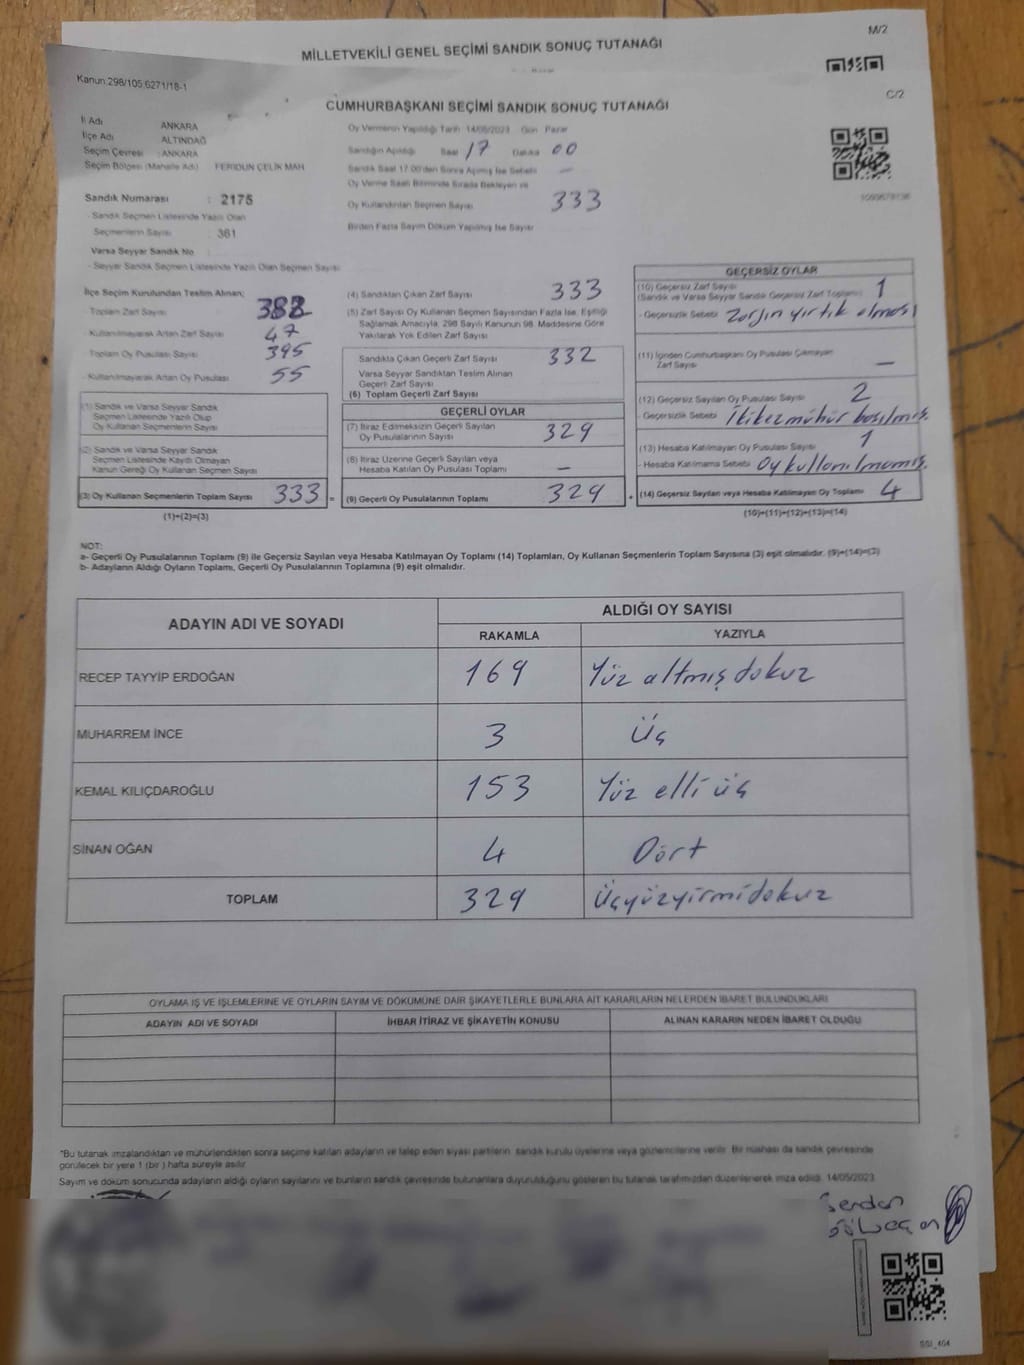 M/2
MİLLETVEKİLİ GENEL SEÇİMİ SANDIK SONUÇ TUTANAĞI
Kanun 298/105;6271/18-1
C/2
CUMHURBAŞKANI SEÇİMİ SANDIK SONUÇ TUTANAĞI
İl Adı ANKARA
İlçe Adı ALTINDAĞ
Seçim Çevresi : ANKARA
Seçim Bölgesi (Mahalle Adı) FERİDUN ÇELİK MAH
Sandık Numarası : 2175
- Sandık Seçmen Listesinde Yazılı Olan
Seçmenlerin Sayısı : 361
Varsa Seyyar Sandık No
- Seyyar Sandık Seçmen Listesinde Yazılı Olan Seçmen Sayısı
Oy Vermenin Yapıldığı Tarih 14/05/2023 Gün Pazar
Sandığın Açıldığı Saat 17 Dakika 00
Sandık Saat 17.00'den Sonra Açılmış İse Sebebi —
Oy Verme Saati Bitiminde Sırada Bekleyen ve
Oy Kullandırılan Seçmen Sayısı 333
Birden Fazla Sayım Döküm Yapılmış İse Sayısı
İlçe Seçim Kurulundan Teslim Alınan;
- Toplam Zarf Sayısı
Kullanılmayarak Artan Zarf Sayısı 47
Toplam Oy Pusulası Sayısı 395
- Kullanılmayarak Artan Oy Pusulası 55
(1) Sandık ve Varsa Seyyar Sandık
Seçmen Listesinde Yazılı Olup
Oy Kullanan Seçmenlerin Sayısı
(2) Sandık ve Varsa Seyyar Sandık
Seçmen Listesinde Kaydı Olmayan
Kanun Gereği Oy Kullanan Seçmen Sayısı
(3) Oy Kullanan Seçmenlerin Toplam Sayısı 333 =
(1)+(2)=(3)
(4) Sandıktan Çıkan Zarf Sayısı 333
(5) Zarf Sayısı Oy Kullanan Seçmen Sayısından Fazla İse, Eşitliği
Sağlamak Amacıyla, 298 Sayılı Kanunun 98. Maddesine Göre
Yakılarak Yok Edilen Zarf Sayısı
Sandıkta Çıkan Geçerli Zarf Sayısı 332
Varsa Seyyar Sandıktan Teslim Alınan
Geçerli Zarf Sayısı
(6) Toplam Geçerli Zarf Sayısı
GEÇERLİ OYLAR
(7) İtiraz Edilmeksizin Geçerli Sayılan
Oy Pusulalarının Sayısı 329
(8) İtiraz Üzerine Geçerli Sayılan veya
Hesaba Katılan Oy Pusulası Toplamı —
(9) Geçerli Oy Pusulalarının Toplamı 329
GEÇERSİZ OYLAR
(10) Geçersiz Zarf Sayısı
(Sandık ve Varsa Seyyar Sandık Geçersiz Zarf Toplamı) 1
- Geçersizlik Sebebi Zarfın yırtık olması
(11) İçinden Cumhurbaşkanı Oy Pusulası Çıkmayan
Zarf Sayısı —
(12) Geçersiz Sayılan Oy Pusulası Sayısı 2
- Geçersizlik Sebebi İki kez mühür basılmış.
(13) Hesaba Katılmayan Oy Pusulası Sayısı 1
- Hesaba Katılmama Sebebi Oy kullanılmamış.
(14) Geçersiz Sayılan veya Hesaba Katılmayan Oy Toplamı 4
(10)+(11)+(12)+(13)=(14)
NOT:
a- Geçerli Oy Pusulalarının Toplamı (9) ile Geçersiz Sayılan veya Hesaba Katılmayan Oy Toplamı (14) Toplamları, Oy Kullanan Seçmenlerin Toplam Sayısına (3) eşit olmalıdır. (9)+(14)=(3)
b- Adayların Aldığı Oyların Toplamı, Geçerli Oy Pusulalarının Toplamına (9) eşit olmalıdır.
ADAYIN ADI VE SOYADI
ALDIĞI OY SAYISI
RAKAMLA YAZIYLA
RECEP TAYYİP ERDOĞAN 169 Yüz altmış dokuz
MUHARREM İNCE 3 Üç
KEMAL KILIÇDAROĞLU 153 Yüz elli üç
SİNAN OĞAN 4 Dört
TOPLAM 329 Üçyüzyirmidokuz
OYLAMA İŞ VE İŞLEMLERİNE VE OYLARIN SAYIM VE DÖKÜMÜNE DAİR ŞİKAYETLERLE BUNLARA AİT KARARLARIN NELERDEN İBARET BULUNDUKLARI
ADAYIN ADI VE SOYADI İHBAR İTİRAZ VE ŞİKAYETİN KONUSU ALINAN KARARIN NEDEN İBARET OLDUĞU
*Bu tutanak imzalandıktan ve mühürlendikten sonra seçime katılan adayların ve talep eden siyasi partilerin sandık kurulu üyelerine veya gözlemcilerine verilir. Bir nüshası da sandık çevresinde
görülecek bir yere 1 (bir) hafta süreyle asılır.
Sayım ve döküm sonucunda adayların aldığı oyların sayılarını ve bunların sandık çevresinde bulunanlara duyurulduğunu gösteren bu tutanak tarafımızdan düzenlenerek imza edildi. 14/05/2023